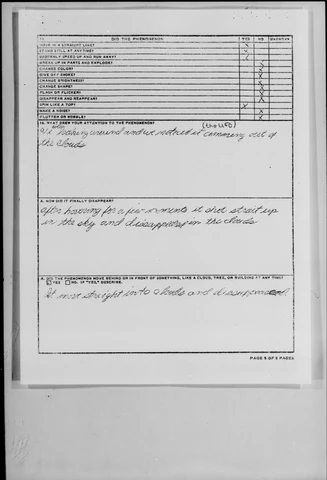 DID THE PHENOMENON YES NO
MOVE IN A STRAIGHT LINE? X
STAND STILL AT ANY TIME? X
SUDDENLY SPEED UP AND RUN AWAY? X
BREAK UP IN PARTS AND EXPLODE? X
CHANGE COLOR? X
GIVE OFF SMOKE? X
CHANGE BRIGHTNESS? X
CHANGE SHAPE? X
FLASH OR FLICKER? X
DISAPPEAR AND REAPPEAR? X
SPIN LIKE A TOP? X
MAKE A NOISE? X
FLUTTER OR WOBBLE? X
WHAT DREW YOUR ATTENTION TO THE PHENOMENON?
(the UFO)
looking around and we noticed it comming out of
the clouds
HOW DID IT FINALLY DISAPPEAR?
after hovring for a few moments it shot strait up
in the sky and dissappered in the clouds
DID THE PHENOMENON MOVE BEHIND OR IN FRONT OF SOMETHING, LIKE A CLOUD, TREE, OR BUILDING AT ANY TIME?
YES NO. IF "YES," DESCRIBE.
It straight into clouds and
PAGE 5 OF PAGES